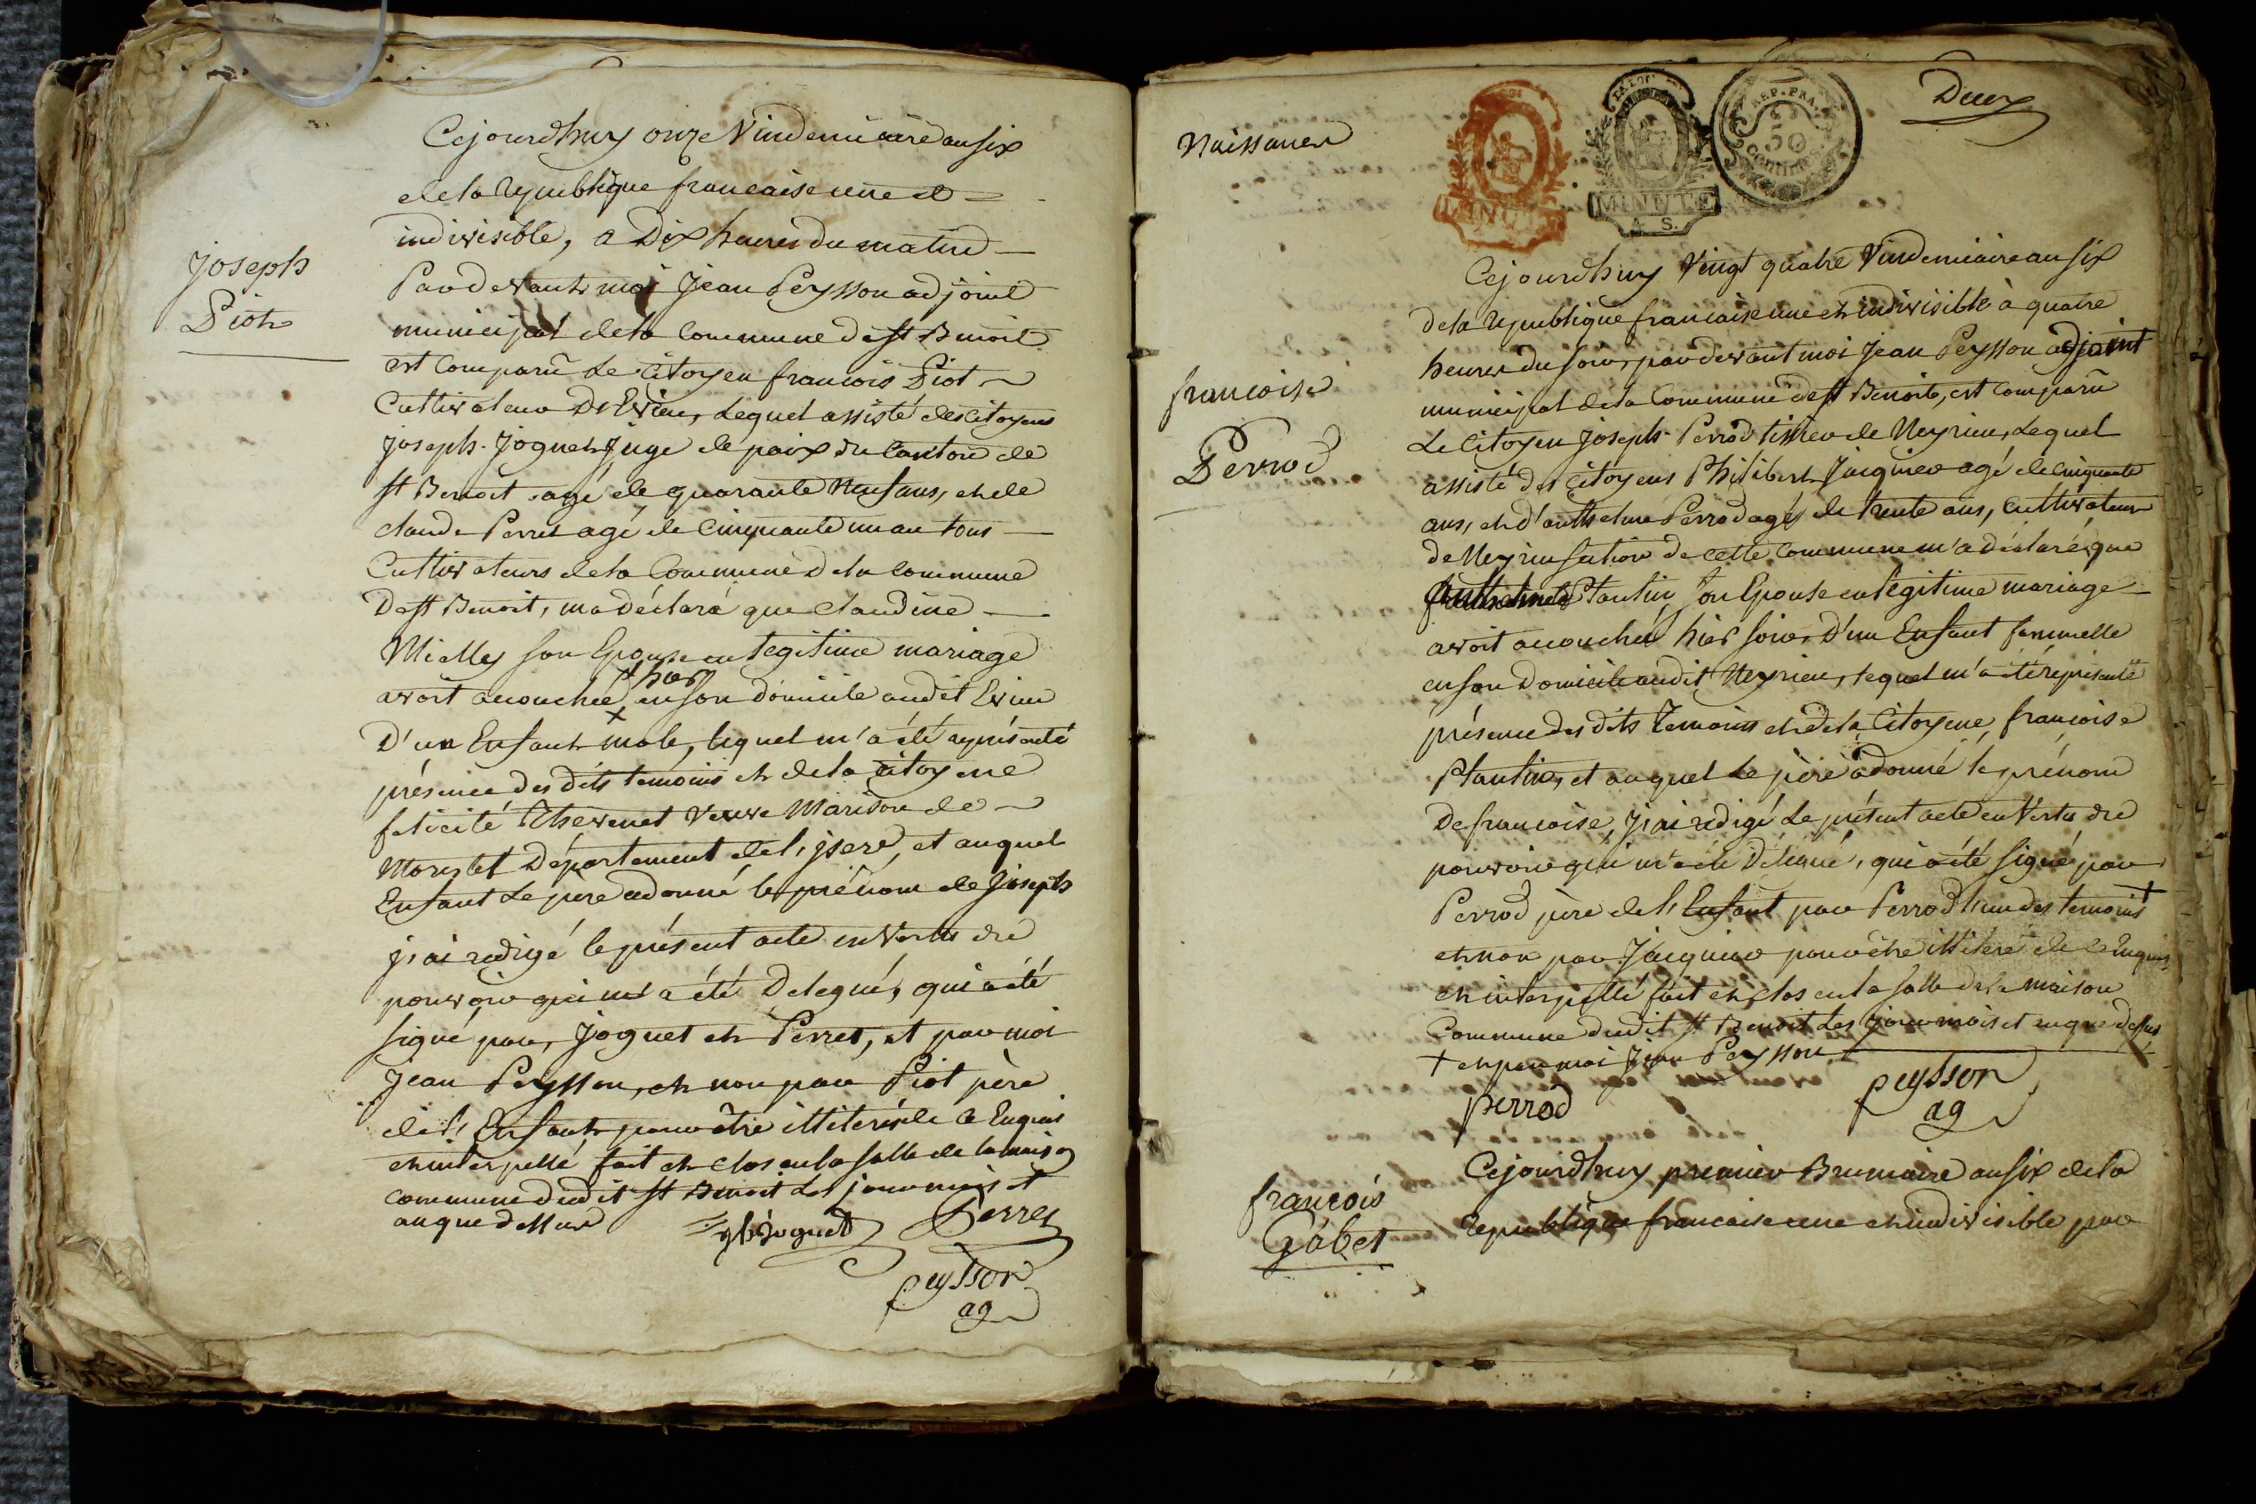 Joseph
Piot
Cejourdhuy onze Vindemiaire an six
de la republique francaise une et
indivisible, a Dix heures du matin
Pardevant moi Jean Peysson adjoint
municipal dela Commune de st Benoit
est Comparû Le Citoyen francois Piot
Cultivateur D'Evieu, Lequel assisté des Citoyens
Joseph Joguet Juge de paix du Canton de
st Benoit agé de quarante Neuf ans, et de
claude Perret agé de Cinquante un an tous
Cultivateurs dela Commune dela commune
De st Benoit, m'a déclaré que claudine
Mielley son Epouse en legitime mariage
+ hier
avoit accouchée, en son domicile audit Evieu
D'un Enfant male, lequel m'a été représenté
présence des dits temoins et dela Citoyene
felicité Thevenet Veuve Marison de
Morestel Département de l'isere, et auquel
Enfant Le pere a donné le prénom de Joseph
j'ai redigé le présent acte en Vertu du
pouvoir qui m'a été Delegué, qui a été
signé par, Joguet et Perret, et par moi
Jean Peysson, et non par Piot père
de l'Enfant pour être illiteré de ce Enquis
et interpellé fait et clos en la salle de la maison
commune dudit st Benoit Les jour mois et
an que dessus
Joguet
Perret
peysson
ag
Naissances
MINUTE
MINUTE
A. S.
REP. FRA.
50
Centimes
Deux
francoise
Perrod
Cejourdhuy Vingt quatre Vindemiaire an six
de la republique francaise une et indivisible à quatre
heures du soir, pardevant moi Jean Peysson adjoint
municipal dela Commune de st Benoit, est Comparû
Le Citoyen Joseph Perrod tissieu de Neyrieu, Lequel
assisté des Citoyens Philibert Jacquier agé de Cinquante
ans, et d'anthelme Perrod agé de trente ans, cultivateur
de Neyrieu section de cette Commune m'a déclaré, que
Plantin son Epouse en legitime mariage
avoit accouchée hier soir, D'un Enfant femmelle
en son Domicile audit Neyrieu, lequel m'a été représenté
présence des dits Temoins et de la Citoyene, francoise
Plantin, et auquel Le père a donné le prénom
De francoise, J'ai redigé Le présent acte en Vertu du
pouvoir qui m'a été Delegué, qui a été signé par
Perrod père de l'Enfant par Perrod l'un des temoins +
et non par Jacquier pour être illiteré de ce Enquis
et interpellé fait et clos en la salle de la maison
Commune dudit st Benoit Les jour mois et an que dessus
+ et par moi Jean Peysson
perrod
peysson
ag
francois
Gabet
Cejourdhuy premier Brumaire an six de la
republique francaise une et indivisible par